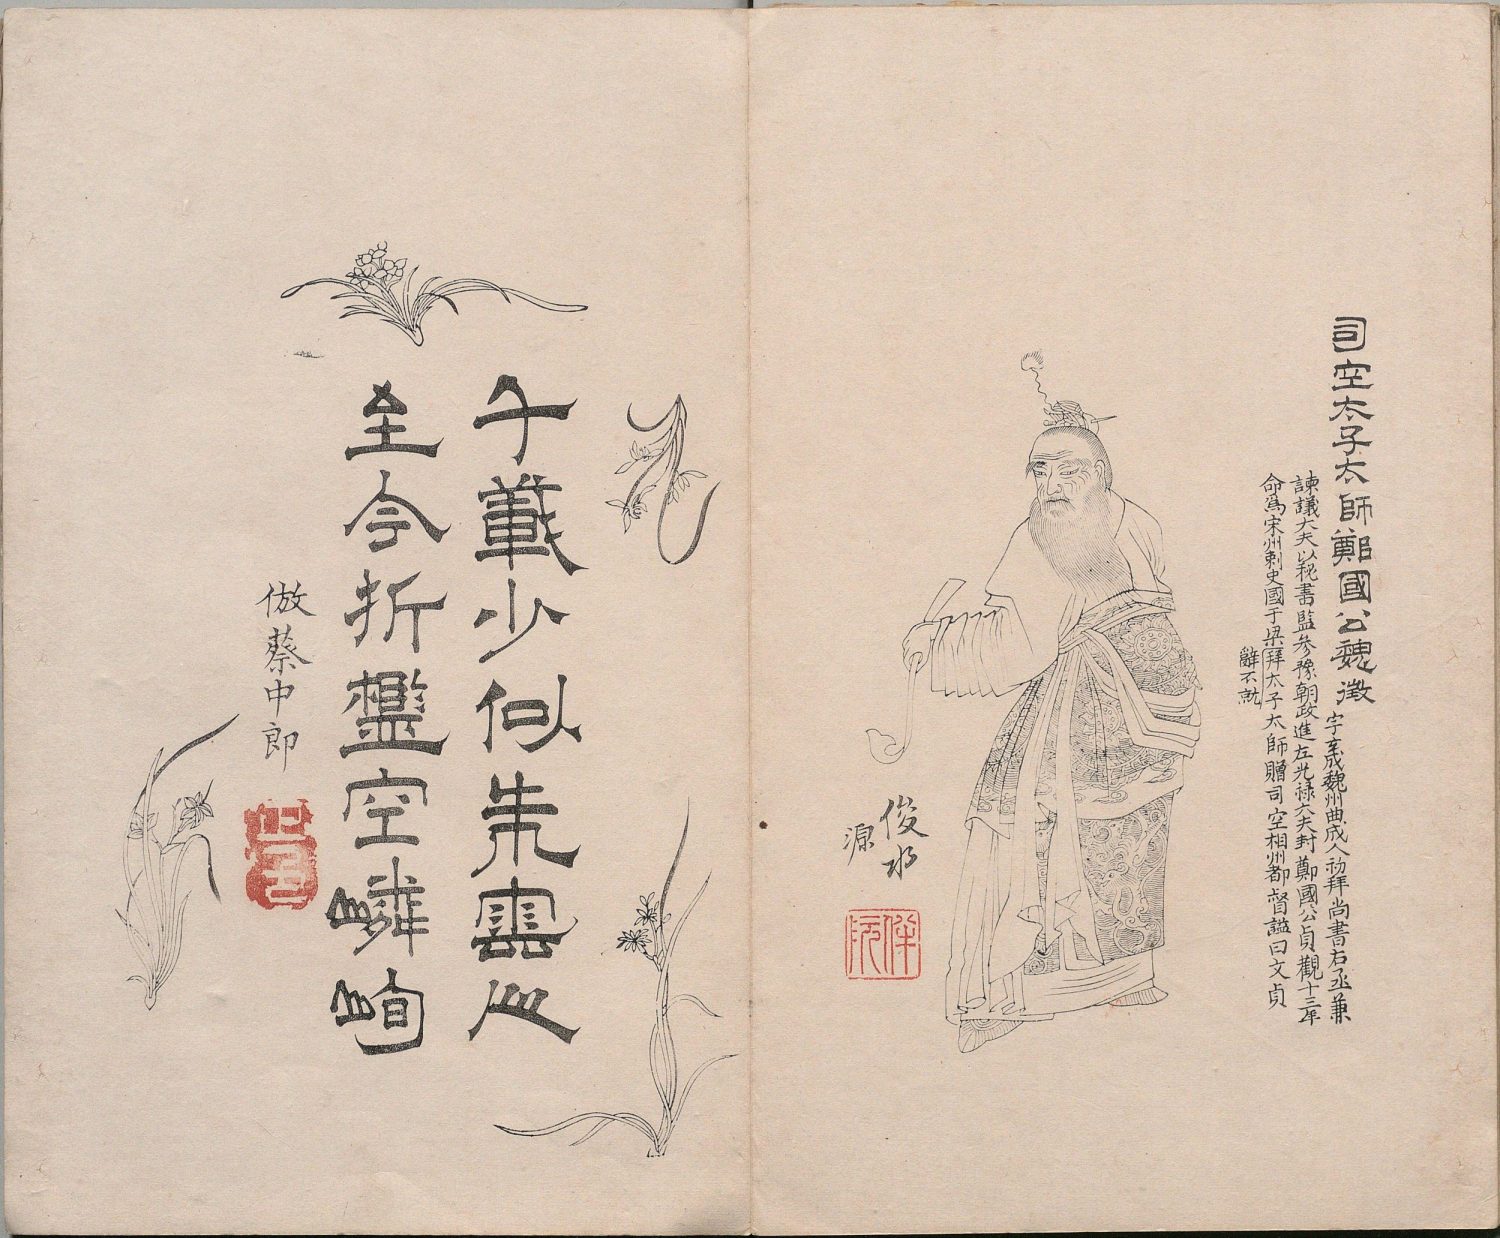 司空太子太師鄭國公魏徵 字玄成魏州曲成人初拜尚書右丞兼
諫議大夫以秘書監參豫朝政進左光祿大夫封鄭國公貞觀十三年
命爲宋州刺史國于梁拜太子太師贈司空相州都督謚曰文貞
辭不就
俊水
源
伴阮
千載少似朱雲心
至今折檻空嶙峋
倣蔡中郎